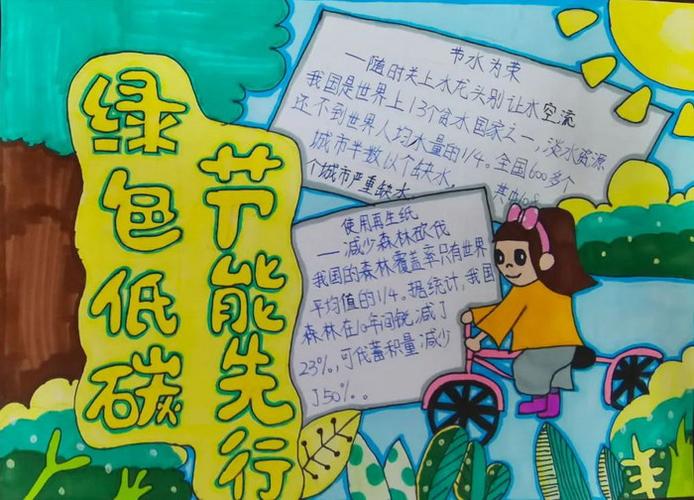 绿色低碳
节能先行
节水为荣
—随时关上水龙头别让水空流
我国是世界上13个贫水国家之一,淡水资源
还不到世界人均水量的1/4。全国600多个
城市半数以个缺水,
其中108
个城市严重缺水
使用再生纸
—减少森林砍伐
我国的森林覆盖率只有世界
平均值的1/4。据统计,我国
森林在10年间锐减了
23%,可伐蓄积量减少
了50%。